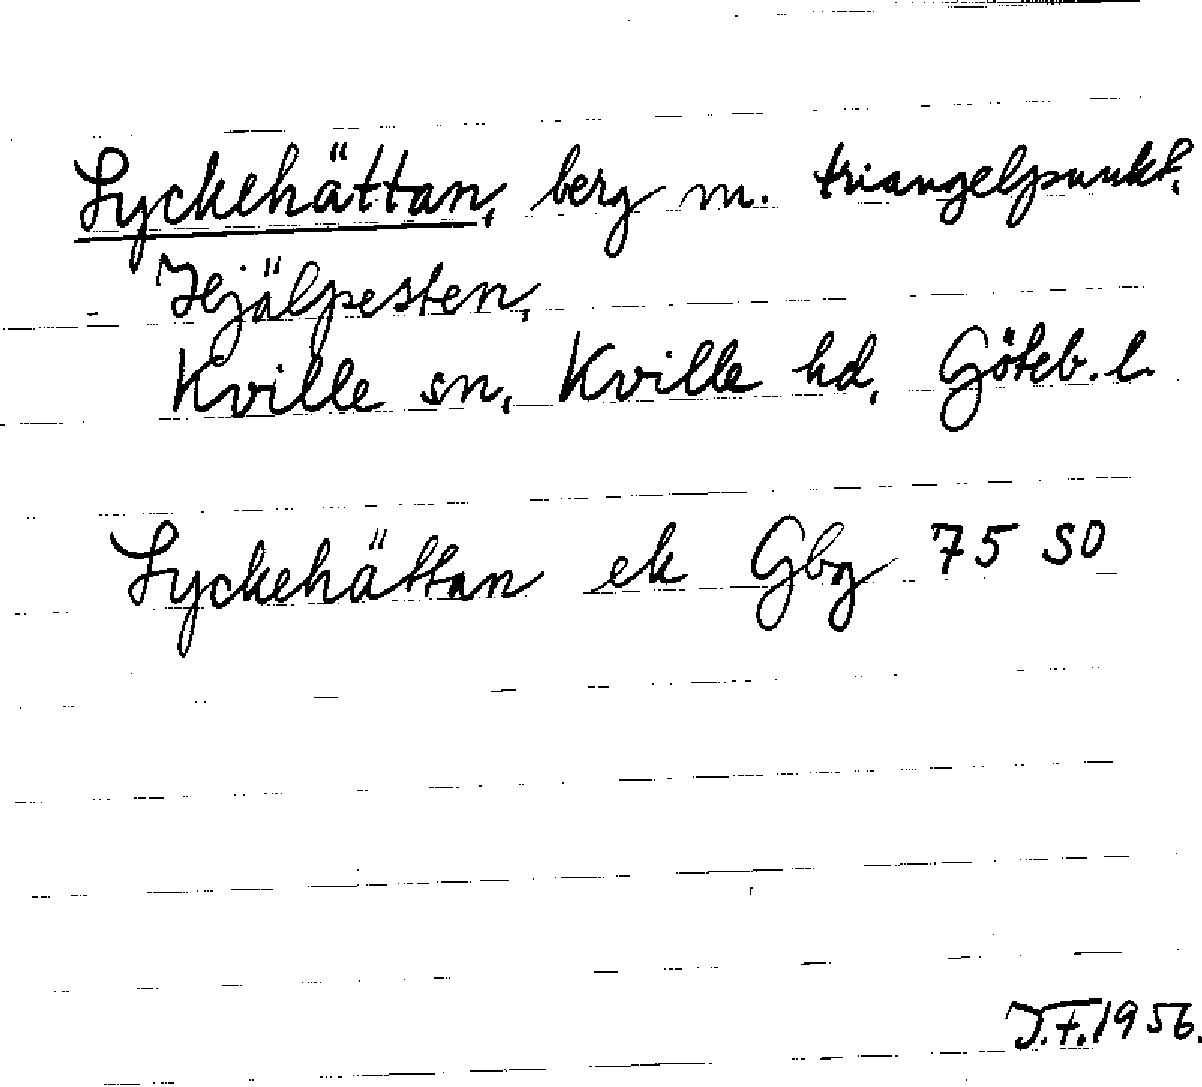 Lyckehättan, berg m. triangelpunkt,
Hjälpesten,
Kville sn, Kville hd, Göteb. l.
Lyckehättan ek Gbg 75 SO
J.F. 1956.